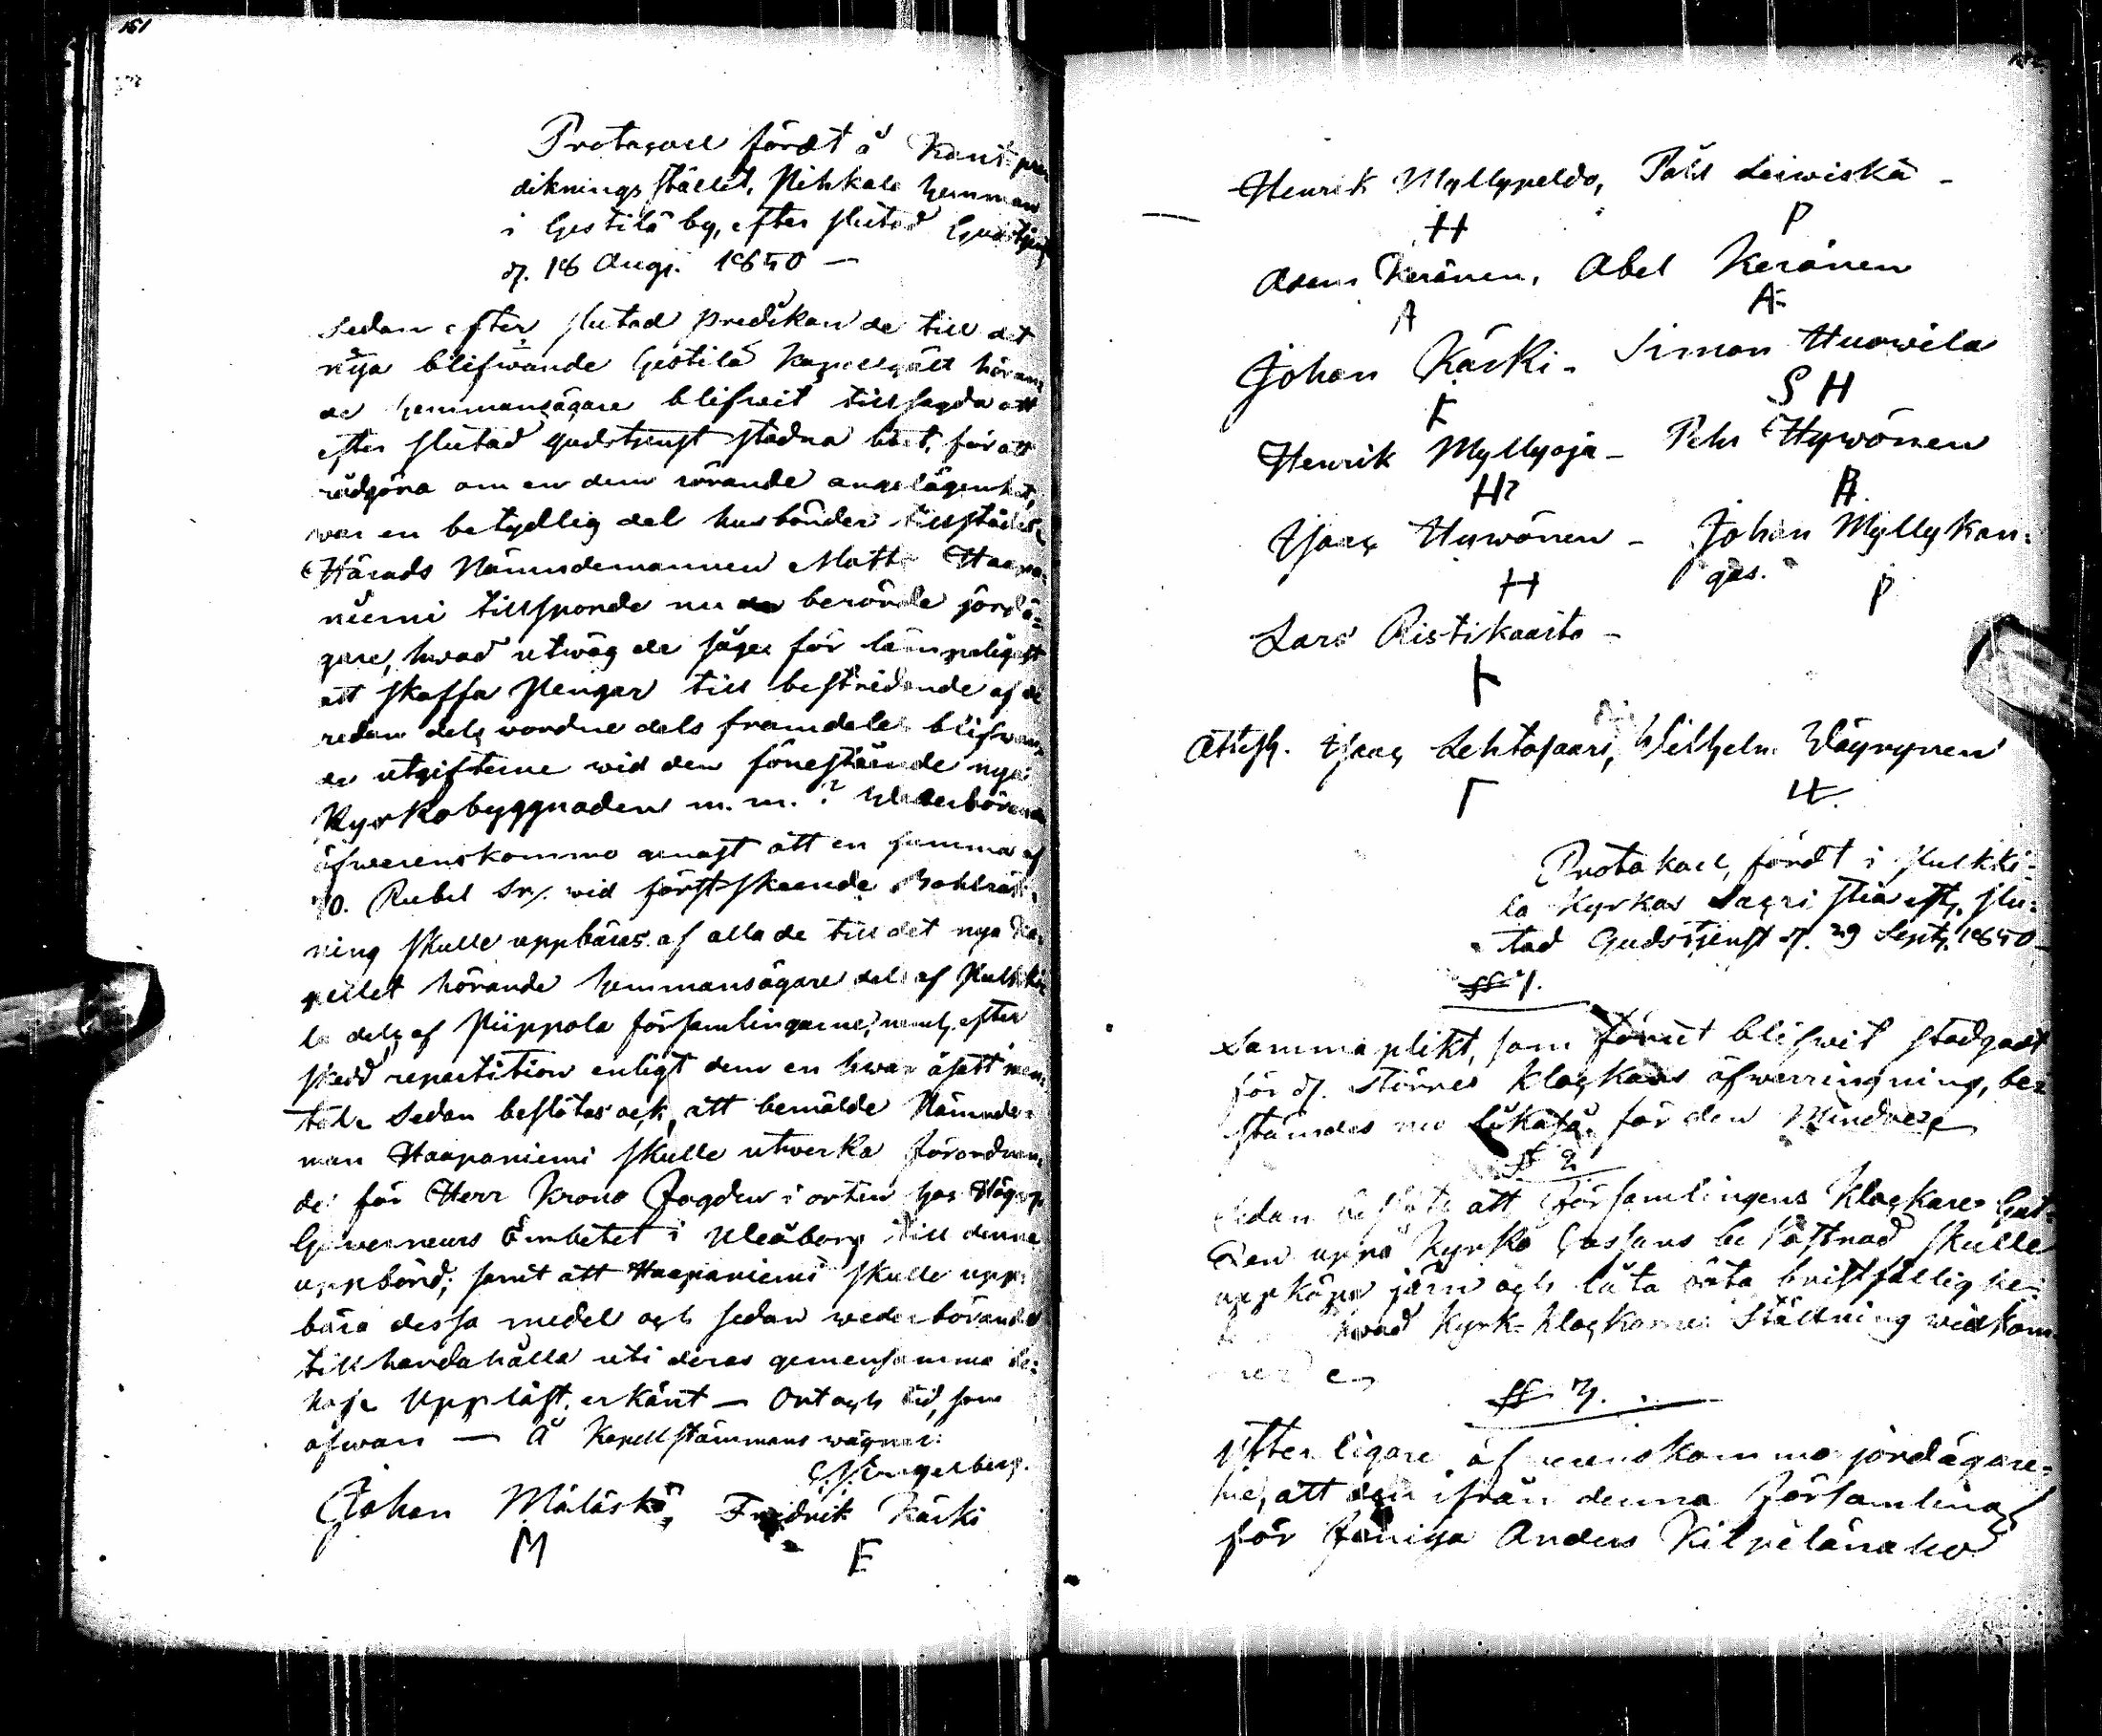 151
Protocoll fördt å
diknings stället, Pihkala hemman
i Gestilä by, efter slutad Gudstjenst
d. 18 Aug. 1850 —
Sedan efter slutad predikan de till det
nya blifwande Gestilä Kapellgäll höran-
de hemmansägare blifwit tillsagda att
efter slutad gudstjenst stadna qvar, för att
rådgöra om en dem rörande angelägenhet,
war en betydlig del husbönder tillstädes.
Härads Nämndemannen Matts Haapa-
niemi tillsporde nu berörde jordä-
gare, hwad utwäg de säge för lämpeligast
att skaffa Pengar till bestridande af de
redan dels vordne dels framdeles blifwan-
de utgifterne wid den förestående nya
Kyrkobyggnaden m. m.? Wederbörande
öfwerenskommo genast att en summa af
Rubel Sr. wid först skeende
ning skulle uppbäras af alla de till det nya Ka-
pellet hörande hemmansägare dels af Pulkki-
la dels af Piippola församlingarne, neml. efter
skedd repartition enligt dem en hwar åsatt man-
tal. Sedan beslötas ock, att bemälde Nämnde-
man Haapaniemi skulle utwerka förordnan-
de för Herr Krono Fogden i orten hos
Gouverneurs Embetet i Uleåborg till denna
uppbörd; samt att Haapaniemi skulle upp-
bära dessa medel och sedan wederbörande
tillhandahålla uti deras gemensamma be-
hof. Uppläst, erkänt — Ort och tid, som
ofwan — Å Kapellstämmans wägnar:
Engelberg.
Johan Mäläskä, Fredrik Kärki
M F
Henrik Myllypeldo, Påhl Leiwiskä -
H P
Adam Keränen, Abel Keränen
A A
Johan Kärki - Simon Huowila
K S H
Henrik Myllyoja - Pehr Hywönen
H P
Isaac Hywönen - Johan Myllykan-
gas.
H P
Lars Ristikaarto -
Attest. Isaac Lehtosaari, Wilhelm Wäyrynen
Protokoll, fördt i Pulkki-
la Kyrkas Sacristia eft. slu-
tad Gudstjenst d. 29 Sept. 1850
§ 1.
Samma plikt, som förut blifwit stadgadt
för d. större klockans öfwerringning, be-
stämdes nu likaså för den Mindre
§ 2
Sedan beslöts att Församlingens Klockare
uppå Kyrko Cassans bekostnad skulle
uppköpa jern och låta bristfällighe-
hwad Kyrk-klockornes ställning widkom-
§ 3.
Ytterligare öfwerenskommo jordägare-
ne, att den ifrån denna församling
för Anders Kilpelänaho